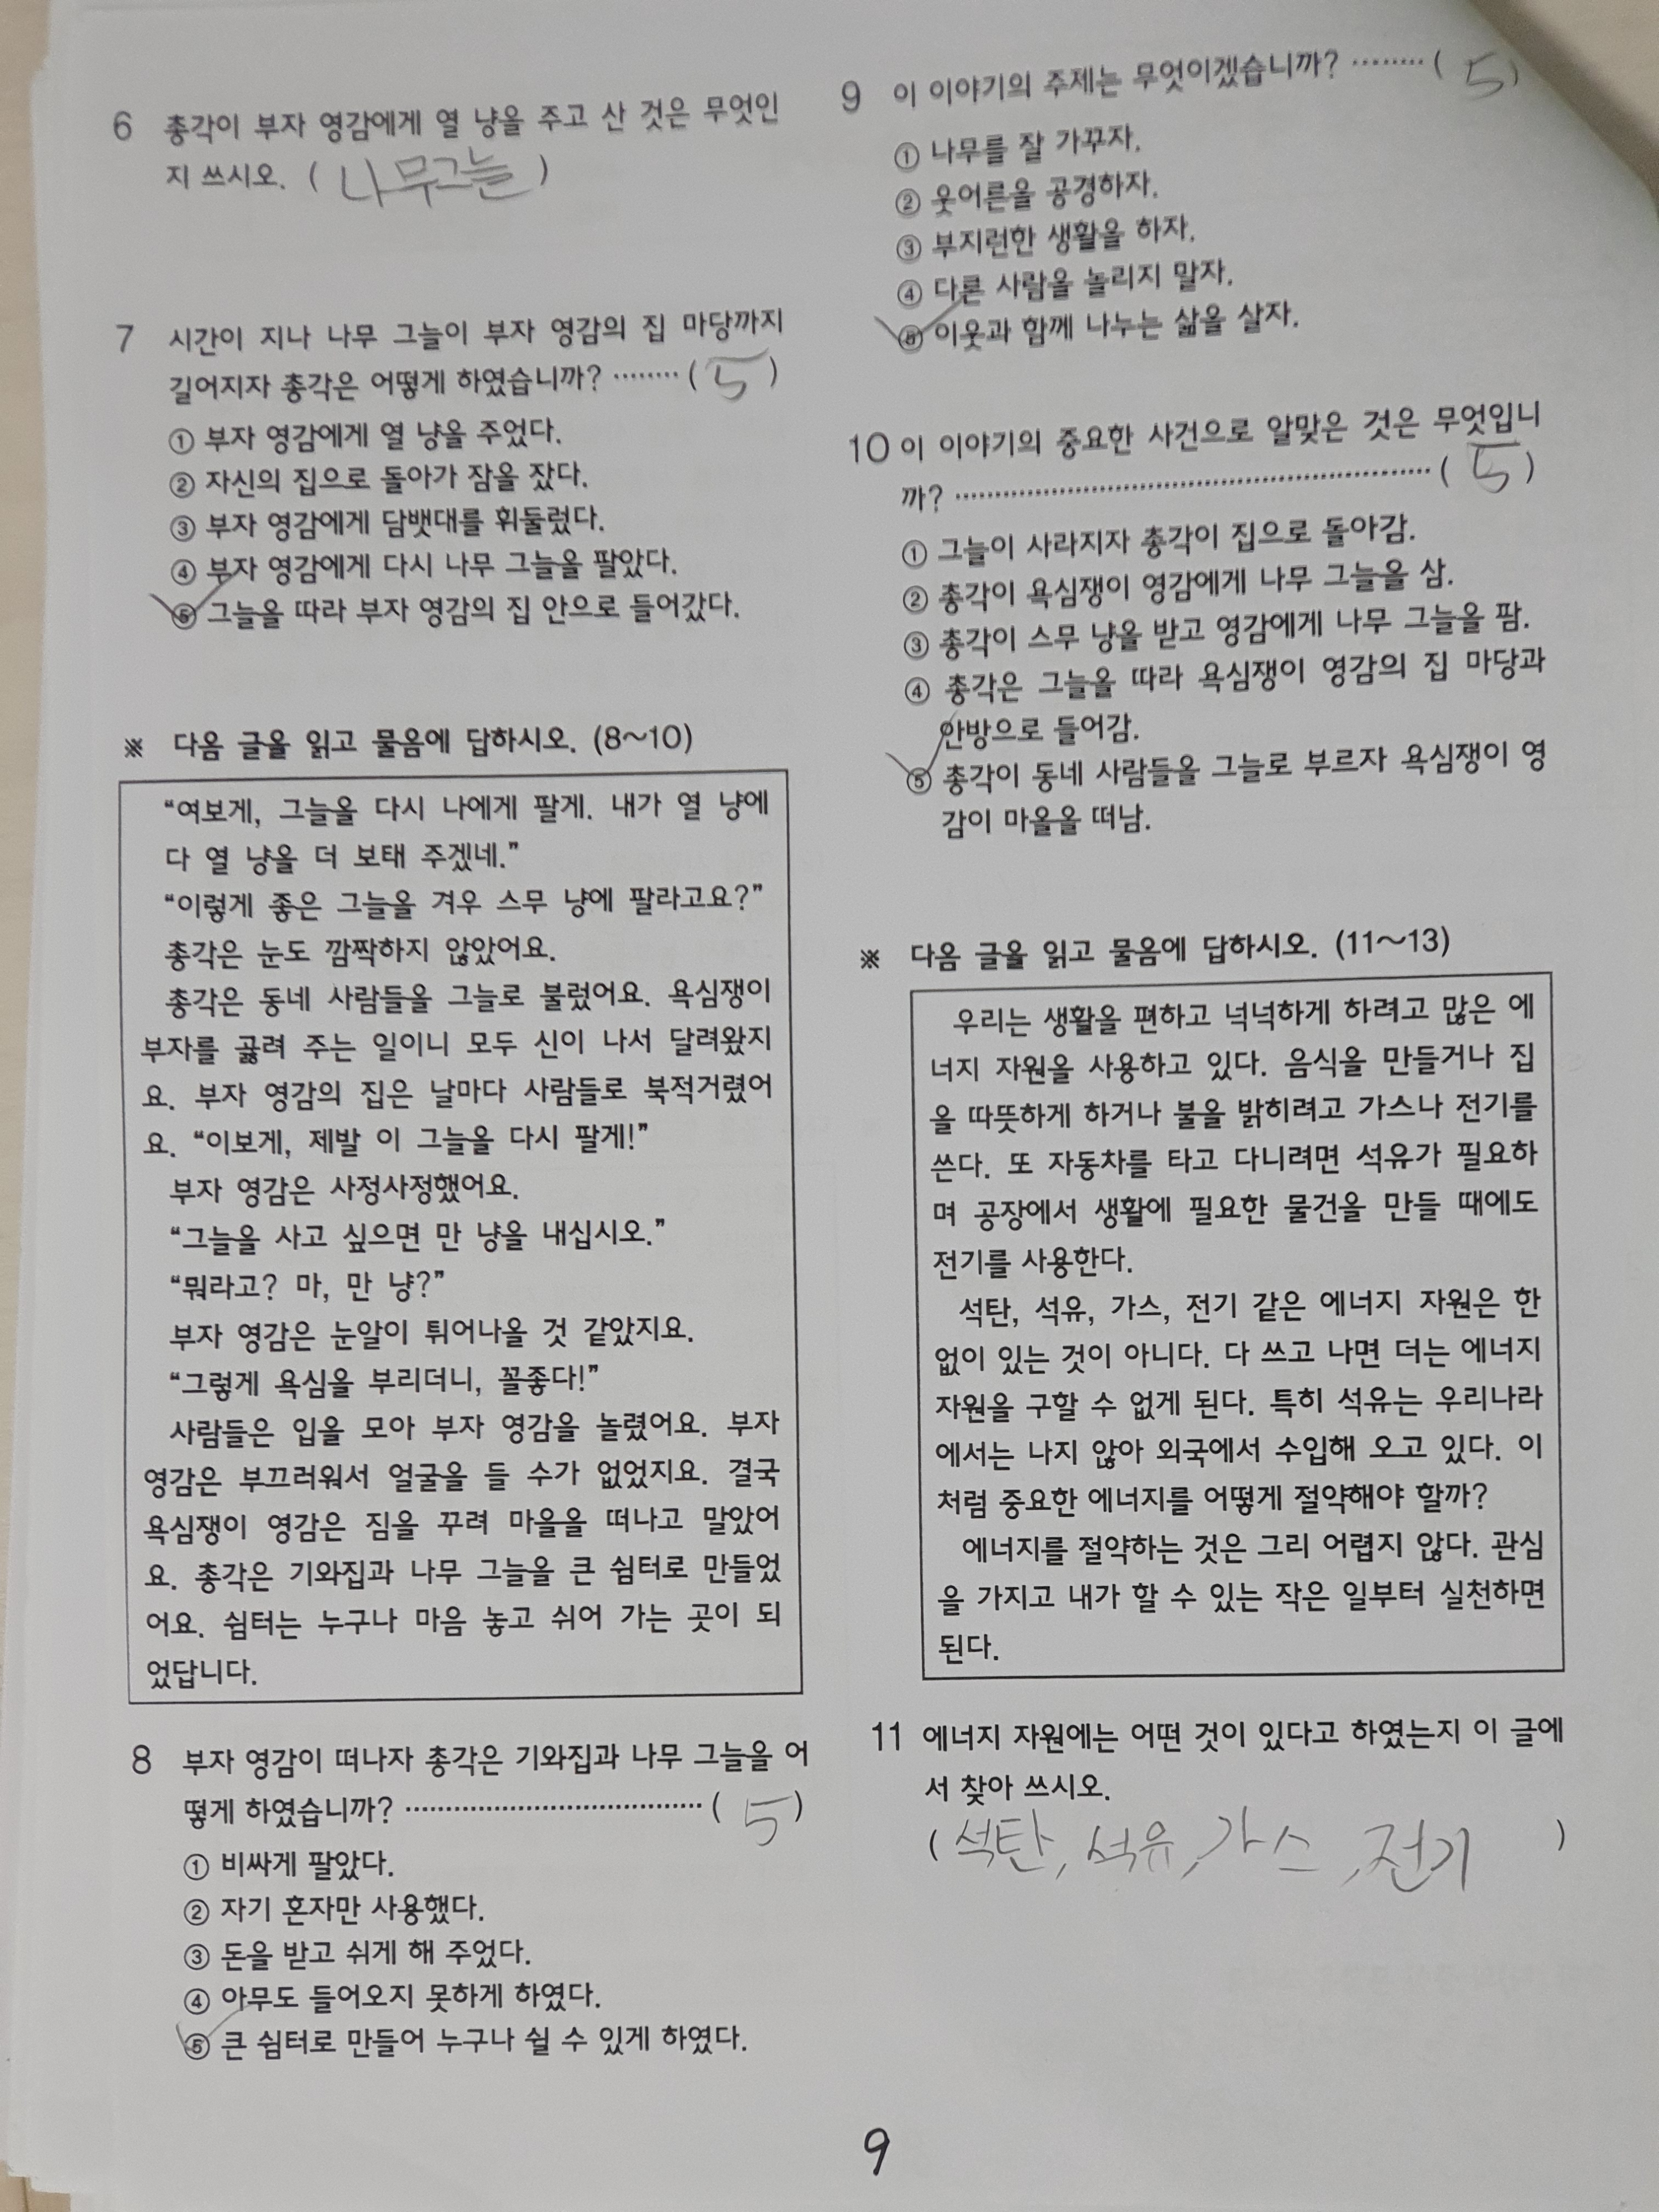 6 총각이 부자 영감에게 열 냥을 주고 산 것은 무엇인
지 쓰시오. ( 나무그늘 )
7 시간이 지나 나무 그늘이 부자 영감의 집 마당까지
길어지자 총각은 어떻게 하였습니까? ········ ( 5 )
① 부자 영감에게 열 냥을 주었다.
② 자신의 집으로 돌아가 잠을 잤다.
③ 부자 영감에게 담뱃대를 휘둘렀다.
④ 부자 영감에게 다시 나무 그늘을 팔았다.
⑤ 그늘을 따라 부자 영감의 집 안으로 들어갔다.
※ 다음 글을 읽고 물음에 답하시오. (8~10)
“여보게, 그늘을 다시 나에게 팔게. 내가 열 냥에
다 열 냥을 더 보태 주겠네.”
“이렇게 좋은 그늘을 겨우 스무 냥에 팔라고요?”
총각은 눈도 깜짝하지 않았어요.
총각은 동네 사람들을 그늘로 불렀어요. 욕심쟁이
부자를 곯려 주는 일이니 모두 신이 나서 달려왔지
요. 부자 영감의 집은 날마다 사람들로 북적거렸어
요. “이보게, 제발 이 그늘을 다시 팔게!”
부자 영감은 사정사정했어요.
“그늘을 사고 싶으면 만 냥을 내십시오.”
“뭐라고? 마, 만 냥?”
부자 영감은 눈알이 튀어나올 것 같았지요.
“그렇게 욕심을 부리더니, 꼴좋다!”
사람들은 입을 모아 부자 영감을 놀렸어요. 부자
영감은 부끄러워서 얼굴을 들 수가 없었지요. 결국
욕심쟁이 영감은 짐을 꾸려 마을을 떠나고 말았어
요. 총각은 기와집과 나무 그늘을 큰 쉼터로 만들었
어요. 쉼터는 누구나 마음 놓고 쉬어 가는 곳이 되
었답니다.
8 부자 영감이 떠나자 총각은 기와집과 나무 그늘을 어
떻게 하였습니까? ···································· ( 5 )
① 비싸게 팔았다.
② 자기 혼자만 사용했다.
③ 돈을 받고 쉬게 해 주었다.
④ 아무도 들어오지 못하게 하였다.
⑤ 큰 쉼터로 만들어 누구나 쉴 수 있게 하였다.
9 이 이야기의 주제는 무엇이겠습니까? ········· ( 5 )
① 나무를 잘 가꾸자.
② 웃어른을 공경하자.
③ 부지런한 생활을 하자.
④ 다른 사람을 놀리지 말자.
⑤ 이웃과 함께 나누는 삶을 살자.
10 이 이야기의 중요한 사건으로 알맞은 것은 무엇입니
까? ·························································· ( 5 )
① 그늘이 사라지자 총각이 집으로 돌아감.
② 총각이 욕심쟁이 영감에게 나무 그늘을 삼.
③ 총각이 스무 냥을 받고 영감에게 나무 그늘을 팜.
④ 총각은 그늘을 따라 욕심쟁이 영감의 집 마당과
안방으로 들어감.
⑤ 총각이 동네 사람들을 그늘로 부르자 욕심쟁이 영
감이 마을을 떠남.
※ 다음 글을 읽고 물음에 답하시오. (11~13)
우리는 생활을 편하고 넉넉하게 하려고 많은 에
너지 자원을 사용하고 있다. 음식을 만들거나 집
을 따뜻하게 하거나 불을 밝히려고 가스나 전기를
쓴다. 또 자동차를 타고 다니려면 석유가 필요하
며 공장에서 생활에 필요한 물건을 만들 때에도
전기를 사용한다.
석탄, 석유, 가스, 전기 같은 에너지 자원은 한
없이 있는 것이 아니다. 다 쓰고 나면 더는 에너지
자원을 구할 수 없게 된다. 특히 석유는 우리나라
에서는 나지 않아 외국에서 수입해 오고 있다. 이
처럼 중요한 에너지를 어떻게 절약해야 할까?
에너지를 절약하는 것은 그리 어렵지 않다. 관심
을 가지고 내가 할 수 있는 작은 일부터 실천하면
된다.
11 에너지 자원에는 어떤 것이 있다고 하였는지 이 글에
서 찾아 쓰시오.
( 석탄, 석유, 가스, 전기 )
9